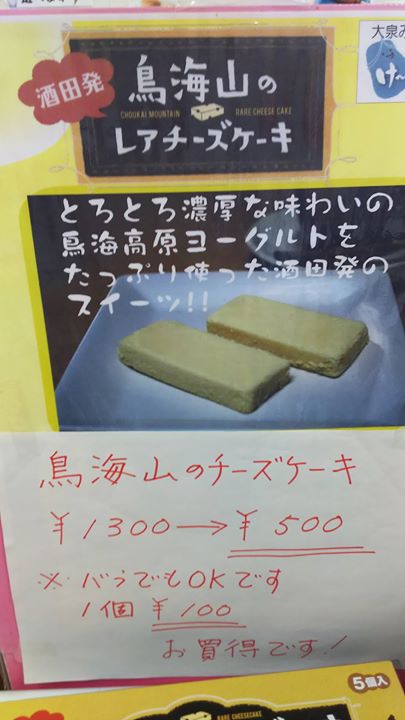 酒田発
鳥海山の
CHOUKAI MOUNTAIN RARE CHEESE CAKE
レアチーズケーキ
大泉
け〜
とろとろ濃厚な味わいの
鳥海高原ヨーグルトを
たっぷり使った酒田発の
スイーツ!!
鳥海山のチーズケーキ
¥1300→¥500
※バラでもOKです
1個 ¥100
お買得です!
5個入
RARE CHEESECAKE